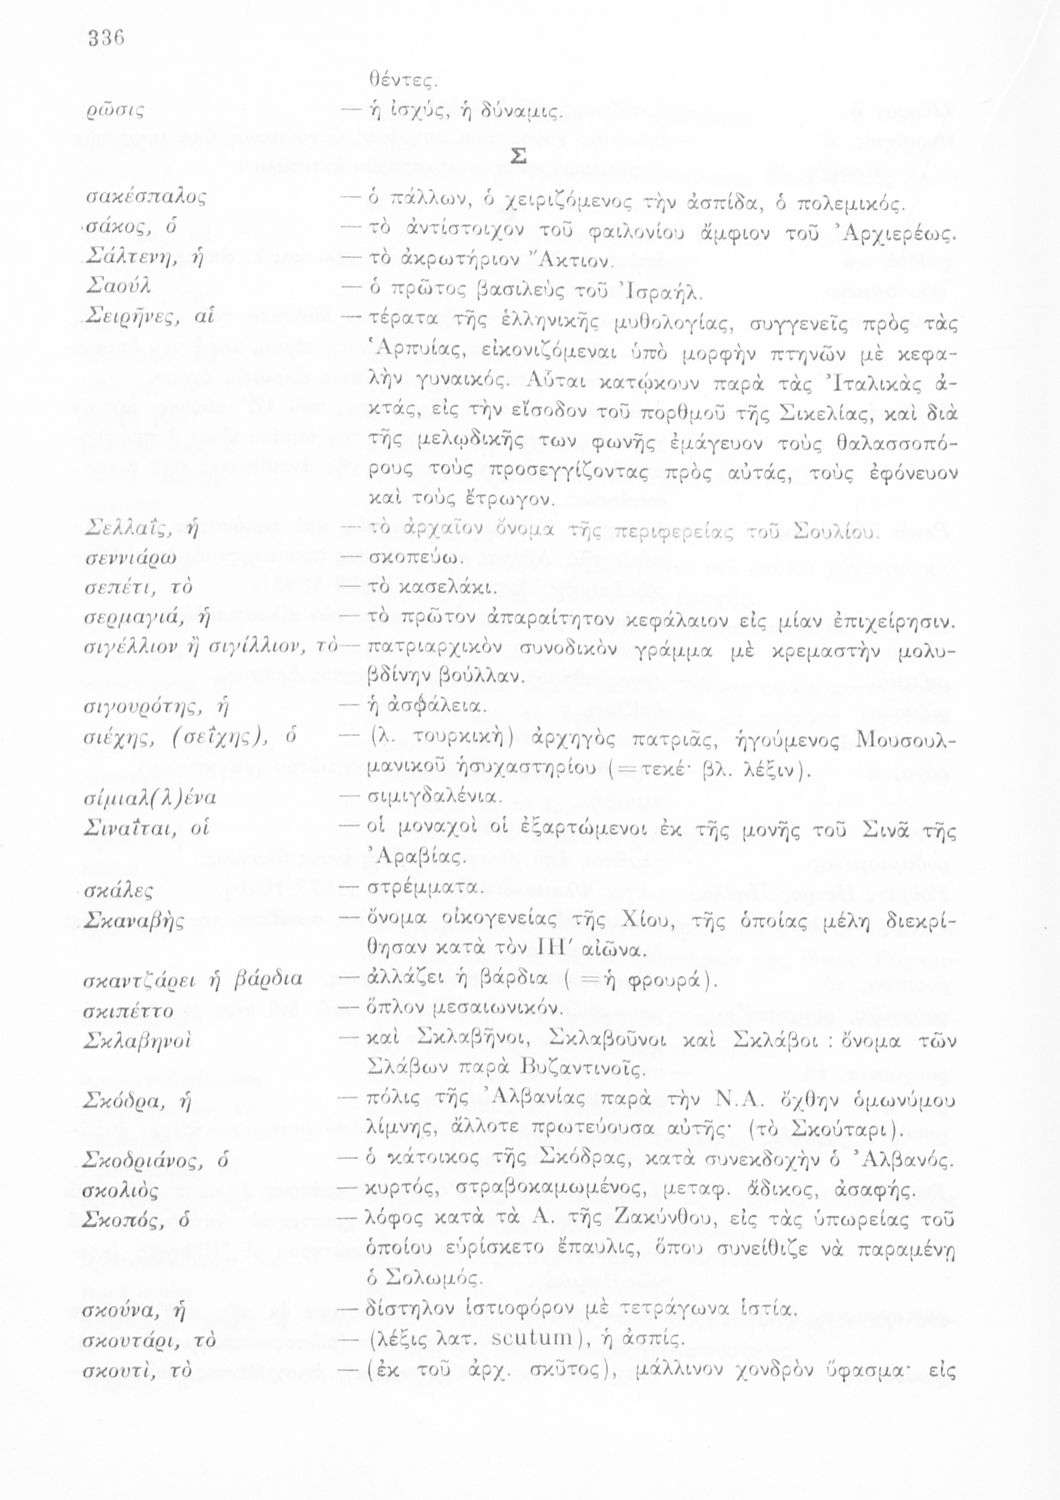 336
θέντες.
ρῶσις — ἡ ἰσχύς, ἡ δύναμις.
Σ
σακέσπαλος — ὁ πάλλων, ὁ χειριζόμενος τὴν ἀσπίδα, ὁ πολεμικός.
σάκος, ὁ — τὸ ἀντίστοιχον τοῦ φαιλονίου ἄμφιον τοῦ Ἀρχιερέως.
Σάλτενη, ἡ — τὸ ἀκρωτήριον Ἄκτιον.
Σαούλ — ὁ πρῶτος βασιλεὺς τοῦ Ἰσραήλ.
Σειρῆνες, αἱ — τέρατα τῆς ἑλληνικῆς μυθολογίας, συγγενεῖς πρὸς τὰς
Ἁρπυίας, εἰκονιζόμεναι ὑπὸ μορφὴν πτηνῶν μὲ κεφα-
λὴν γυναικός. Αὗται κατῴκουν παρὰ τὰς Ἰταλικὰς ἀ-
κτάς, εἰς τὴν εἴσοδον τοῦ πορθμοῦ τῆς Σικελίας, καὶ διὰ
τῆς μελῳδικῆς των φωνῆς ἐμάγευον τοὺς θαλασσοπό-
ρους τοὺς προσεγγίζοντας πρὸς αὐτάς, τοὺς ἐφόνευον
καὶ τοὺς ἔτρωγον.
Σελλαΐς, ἡ — τὸ ἀρχαῖον ὄνομα τῆς περιφερείας τοῦ Σουλίου.
σεννιάρω — σκοπεύω.
σεπέτι, τὸ — τὸ κασελάκι.
σερμαγιά, ἡ — τὸ πρῶτον ἀπαραίτητον κεφάλαιον εἰς μίαν ἐπιχείρησιν.
σιγέλλιον ἢ σιγίλλιον, τὸ — πατριαρχικὸν συνοδικὸν γράμμα μὲ κρεμαστὴν μολυ-
βδίνην βούλλαν.
σιγουρότης, ἡ — ἡ ἀσφάλεια.
σιέχης, (σεΐχης), ὁ — (λ. τουρκικὴ) ἀρχηγὸς πατριᾶς, ἡγούμενος Μουσουλ-
μανικοῦ ἡσυχαστηρίου (= τεκέ· βλ. λέξιν).
σίμιαλ(λ)ένα — σιμιγδαλένια.
Σιναῖται, οἱ — οἱ μοναχοὶ οἱ ἐξαρτώμενοι ἐκ τῆς μονῆς τοῦ Σινᾶ τῆς
Ἀραβίας.
σκάλες — στρέμματα.
Σκαναβὴς — ὄνομα οἰκογενείας τῆς Χίου, τῆς ὁποίας μέλη διεκρί-
θησαν κατὰ τὸν ΙΗ′ αἰῶνα.
σκαντζάρει ἡ βάρδια — ἀλλάζει ἡ βάρδια ( = ἡ φρουρά).
σκιπέττο — ὅπλον μεσαιωνικόν.
Σκλαβηνοὶ — καὶ Σκλαβῆνοι, Σκλαβοῦνοι καὶ Σκλάβοι : ὄνομα τῶν
Σλάβων παρὰ Βυζαντινοῖς.
Σκόδρα, ἡ — πόλις τῆς Ἀλβανίας παρὰ τὴν Ν.Α. ὄχθην ὁμωνύμου
λίμνης, ἄλλοτε πρωτεύουσα αὐτῆς· (τὸ Σκούταρι).
Σκοδριάνος, ὁ — ὁ κάτοικος τῆς Σκόδρας, κατὰ συνεκδοχὴν ὁ Ἀλβανός.
σκολιὸς — κυρτός, στραβοκαμωμένος, μεταφ. ἄδικος, ἀσαφής.
Σκοπός, ὁ — λόφος κατὰ τὰ Α. τῆς Ζακύνθου, εἰς τὰς ὑπωρείας τοῦ
ὁποίου εὑρίσκετο ἔπαυλις, ὅπου συνείθιζε νὰ παραμένῃ
ὁ Σολωμός.
σκούνα, ἡ — δίστηλον ἱστιοφόρον μὲ τετράγωνα ἱστία.
σκουτάρι, τὸ — (λέξις λατ. scutum), ἡ ἀσπίς.
σκουτὶ, τὸ — (ἐκ τοῦ ἀρχ. σκῦτος), μάλλινον χονδρὸν ὕφασμα· εἰς